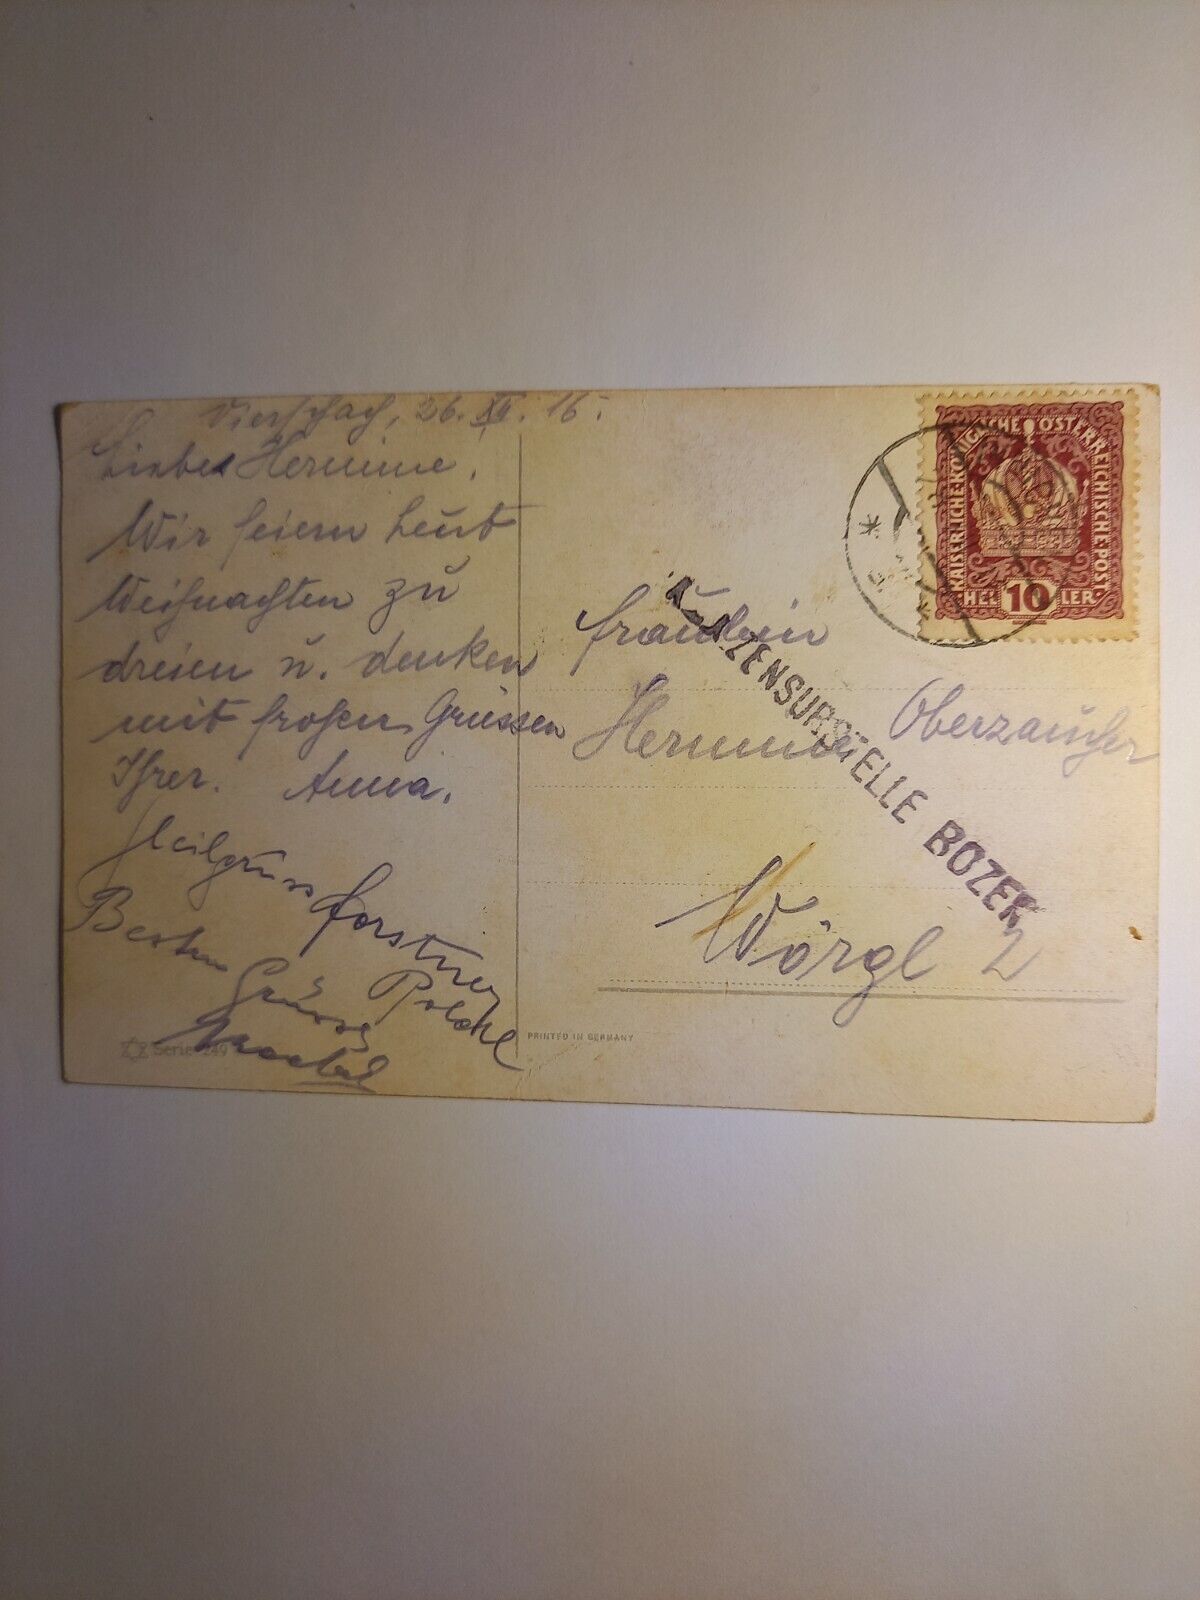 Vierschach, 26. XII. 16.
Liebe Hermine.
Wir feiern heut
Weihnachten zu
dreien u. denken
mit frohen Grüssen
Ihrer. Anna.
Heilgruss Forstner
Besten
Grüsse
Serie 249
PRINTED IN GERMANY
KAISERLICHE KÖNIGLICHE ÖSTERREICHISCHE POST
HELLER
10
ZENSURSTELLE BOZEN
Fräulein
Hermine Oberzaucher
Wörgl